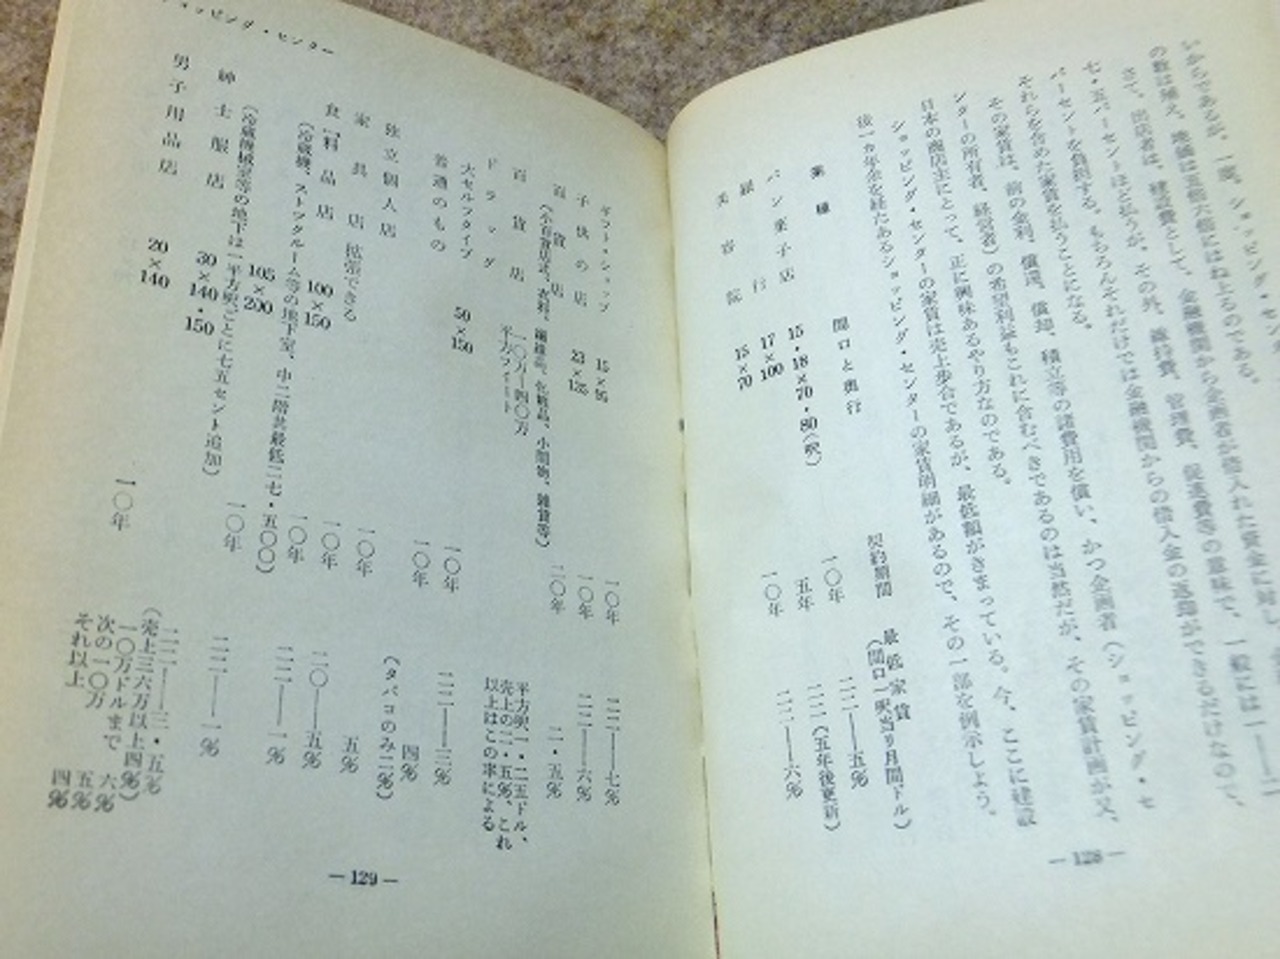 いからであるが、一度、ショッピング・センタ
の数は殖え、地価は五倍六倍にはねとるのである。
さて、出店者は、建設費として、金融機関から企画者が借入れた資金に対し
七・五パーセントほど払うが、その外、維持費、管理費、促進費等の意味で、一般には一
パーセントを負担する。もちろんそれだけでは金融機関からの借入金の返却ができるだけなので、
それらを含めた家賃を払うことになる。
その家賃は、前の金利、償還、償却、積立等の諸費用を償い、かつ企画者（ショッピング・セ
ンターの所有者、経営者）の希望利益もこれに含むべきであるのは当然だが、その家賃計画が又、
日本の商店主にとって、正に興味あるやり方なのである。
ショッピング・センターの家賃は売上歩合であるが、最低額がきまっている。今、ここに建設
後一カ年余を経たあるショッピング・センターの家賃明細があるので、その一部を例示しよう。
業種 間口と奥行 契約期間 最低家賃（間口一呎当り月間ドル）
パン菓子店 15・18×70・80（呎） 一〇年 二二――五%
銀行 17×100 五年 二二（五年後更新）
美容院 15×70 一〇年 二二――六%
―128―
ショッピング・センター
ギフト・ショップ 15×95 一〇年 二二――七%
子供の店 23×135 一〇年 二二――六%
百貨店 二〇年 二・五%
（小百貨店式、衣料、繊維品、化粧品、小間物、雑貨等）
百貨店 一〇万―四〇万平方フィート 平方呎一・二五ドル、売上の二・五%、これ以上はこの率による
ドラッグ
大セルフタイプ 50×150 一〇年 二二――三%
普通のもの 一〇年 四%
（タバコのみ二%）
独立個人店
家具店 拡張できる 一〇年 五%
食料品店 100×150 一〇年 二〇――五%
（冷蔵機、ストックルーム等の地下室、中二階共最低二七・五〇〇）
105×200 一〇年 二二――一%
（冷蔵機械室等の地下は一平方呎ごとに七五セント追加）
紳士服店 30×140・150 一〇年 二二――一%
男子用品店 20×140 一〇年 二二――三・五%
（売上三六万以上四%）
一〇万ドルまで 六%
次の一〇万 五%
それ以上 四%
―129―